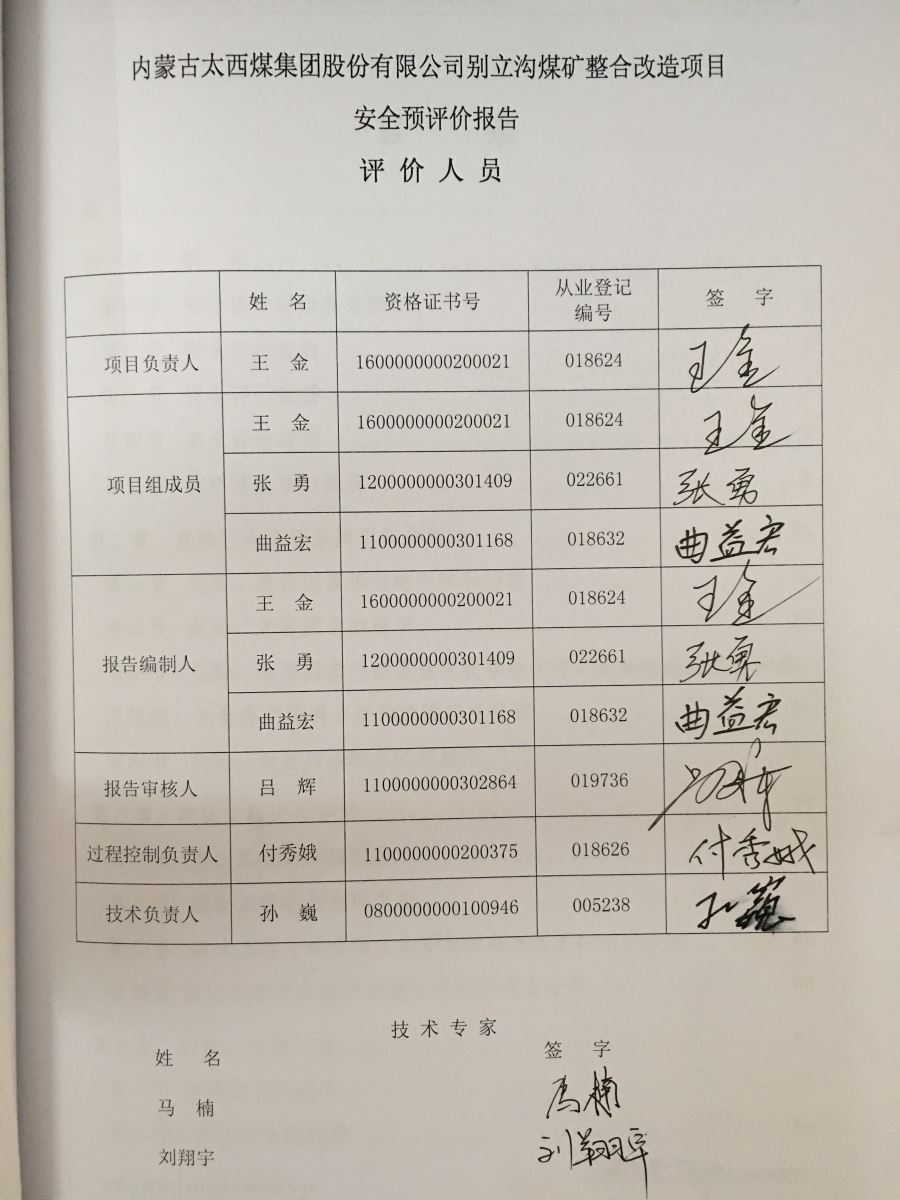 内蒙古太西煤集团股份有限公司别立沟煤矿整合改造项目
安全预评价报告
评价人员
姓名 资格证书号 从业登记编号 签字
项目负责人 王金 1600000000200021 018624 王金
项目组成员 王金 1600000000200021 018624 王金
张勇 1200000000301409 022661 张勇
曲益宏 1100000000301168 018632 曲益宏
报告编制人 王金 1600000000200021 018624 王金
张勇 1200000000301409 022661 张勇
曲益宏 1100000000301168 018632 曲益宏
报告审核人 吕辉 1100000000302864 019736 吕辉
过程控制负责人 付秀娥 1100000000200375 018626 付秀娥
技术负责人 孙巍 0800000000100946 005238 孙巍
技术专家
姓名 签字
马楠 马楠
刘翔宇 刘翔宇